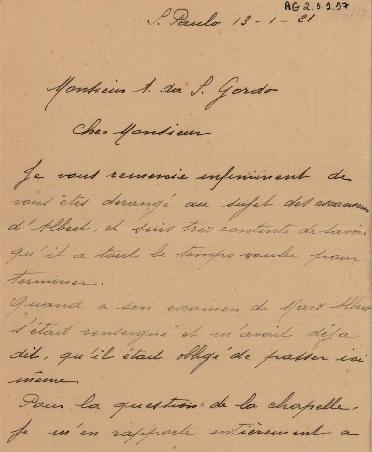 AG 2.9.9.97
S. Paulo 13-1-21
Monsieur A. da S. Gordo
Cher Monsieur
Je vous remercie infiniment de
vous êtes derangé au sujet des
d'Albert, et suis très contente de savoir
qu'il a tout le temps voulu pour
terminer.
Quand a son examen de Mars Albert
s'était renseigné et m'avait déja
dit, qu'il était obligé de passer ici
même.
Pour la question de la chapelle,
je m'en rapporte entièrement a